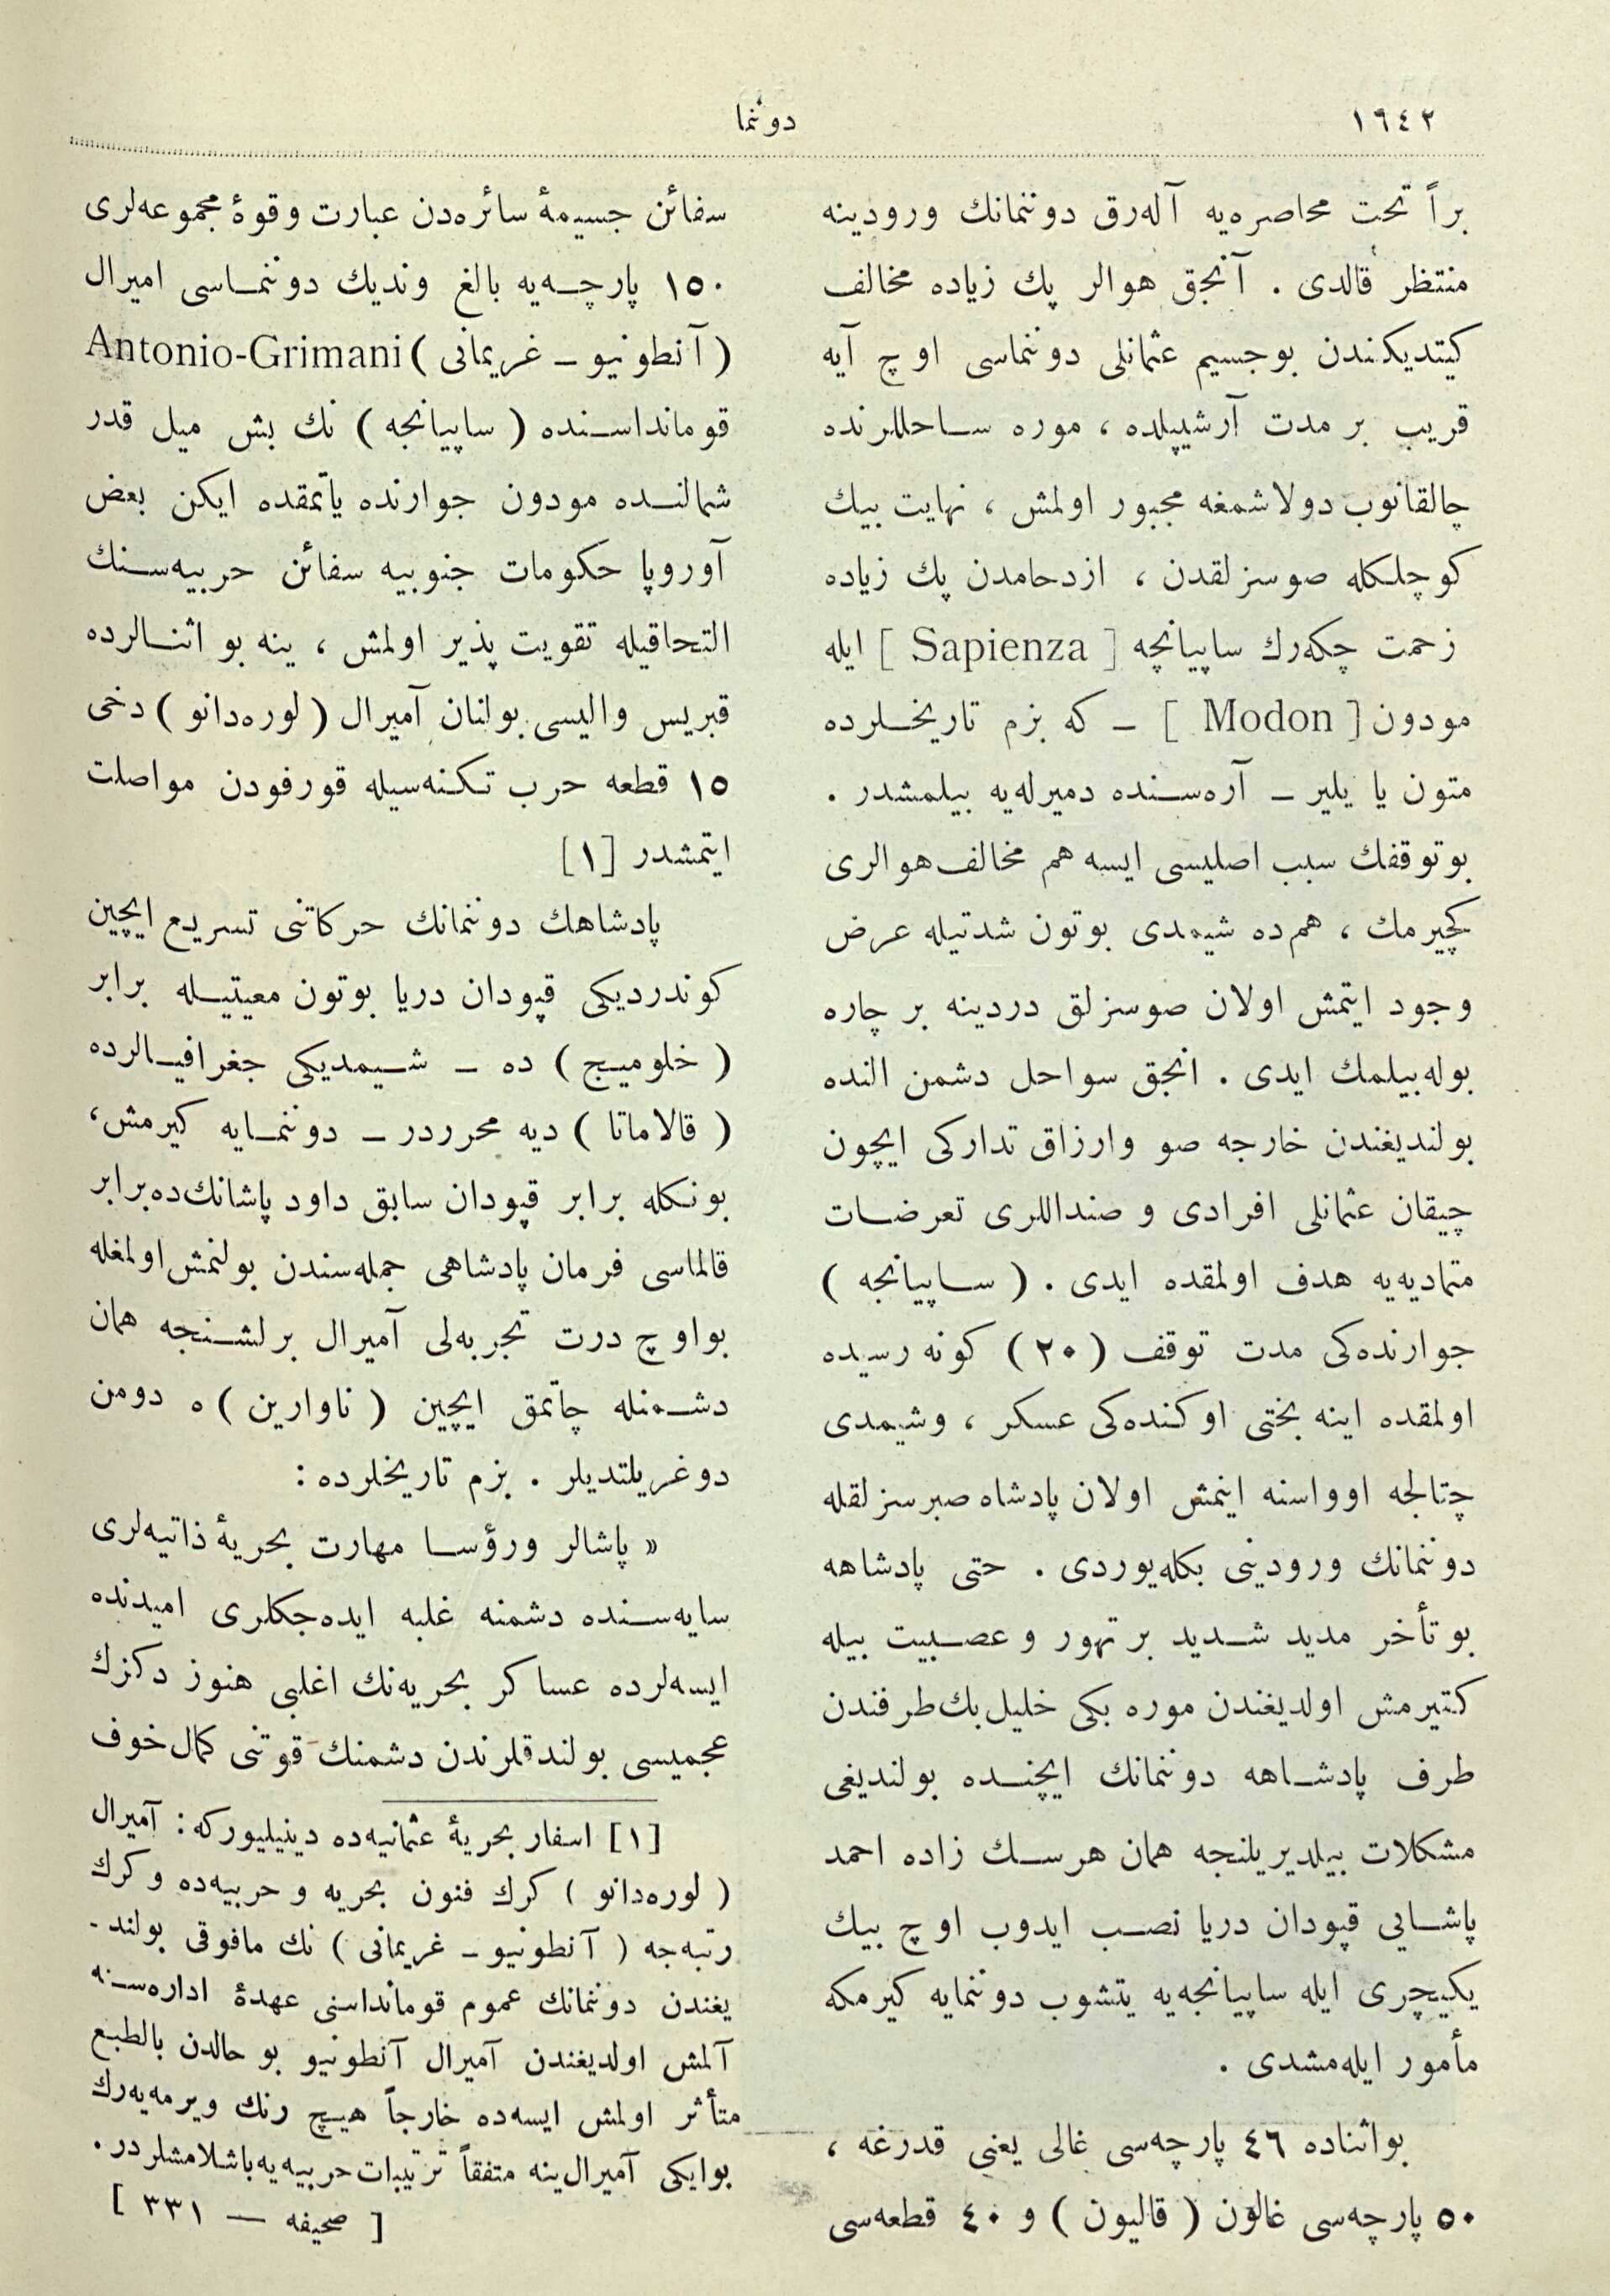 ١٩٤٢
دوننما
براً تحت محاصره‌يه آله‌رق دوننمانك ورودينه
منتظر قالدی . آنجق هوالر پك زياده مخالف
كيتديكندن بوجسيم عثمانلی دوننماسی اوچ آيه
قريب بر مدت آرشيپلده ، موره ساحللرنده
چالقانوب دولاشمغه مجبور اولمش ، نهايت بيك
كوچلكله صوسزلقدن ، ازدحامدن پك زياده
زحمت چكه‌رك ساپيانچه [ Sapienza ] ايله
مودون [ Modon ] ـ كه بزم تاريخلرده
متون يا يلير ـ آره‌سنده دميرله‌يه بيلمشدر .
بوتوقفك سبب اصليسی ايسه هم مخالف هوالری
كچيرمك ، هم‌ده شيمدی بوتون شدتيله عرض
وجود ايتمش اولان صوسزلق دردينه بر چاره
بوله‌بيلمك ايدی . انجق سواحل دشمن النده
بولنديغندن خارجه صو وارزاق تداركی ايچون
چيقان عثمانلی افرادی و صنداللری تعرضات
متماديه‌يه هدف اولمقده ايدی . ( ساپيانجه )
جوارنده‌كی مدت توقف (٢٠) كونه رسيده
اولمقده اينه بختی اوكنده‌كی عسكر ، وشيمدی
چتالجه اوواسنه اينمش اولان پادشاه صبرسزلقله
دوننمانك ورودينی بكله‌يوردی . حتی پادشاهه
بو تأخر مديد شديد بر تهور و عصبيت بيله
كتيرمش اولديغندن موره بكی خليل بك طرفندن
طرف پادشاهه دوننمانك ايچنده بولنديغی
مشكلات بيلديريلنجه همان هرسك زاده احمد
پاشايی قپودان دريا نصب ايدوب اوچ بيك
يكيچری ايله ساپيانجه‌يه يتشوب دوننمايه كيرمكه
مأمور ايله‌مشدی .
بواثناده ٤٦ پارچه‌سی غالی يعنی قدرغه ،
٥٠ پارچه‌سی غالون ( قاليون ) و ٤٠ قطعه‌سی
سفائن جسيمهٔ سائره‌دن عبارت وقوهٔ مجموعه‌لری
١٥٠ پارچه‌يه بالغ ونديك دوننماسی اميرال
( آنطونيو ـ غريمانی ) Antonio-Grimani
قومانداسنده ( ساپيانجه ) نك بش ميل قدر
شمالنده مودون جوارنده ياتمقده ايكن بعض
آوروپا حكومات جنوبيه سفائن حربيه‌سنك
التحاقيله تقويت پذير اولمش ، ينه بو اثنالرده
قبريس واليسی بولنان آميرال ( لوره‌دانو ) دخی
١٥ قطعه حرب تكنه‌سيله قورفودن مواصلت
ايتمشدر [١]
پادشاهك دوننمانك حركاتنی تسريع ايچين
كوندرديكی قپودان دريا بوتون معيتيله برابر
( خلوميج ) ده ـ شيمديكی جغرافيالرده
( قالاماتا ) ديه محرردر ـ دوننمايه كيرمش ،
بونكله برابر قپودان سابق داود پاشانك‌ده برابر
قالماسی فرمان پادشاهی جمله‌سندن بولنمش اولمغله
بواوچ درت تجربه‌لی آميرال برلشنجه همان
دشمنله چاتمق ايچين ( ناوارين ) ه دومن
دوغريلتديلر . بزم تاريخلرده :
« پاشالر ورؤسا مهارت بحريهٔ ذاتيه‌لری
سايه‌سنده دشمنه غلبه ايده‌جكلری اميدنده
ايسه‌لرده عساكر بحريه‌نك اغلبی هنوز دكزك
عجميسی بولندقلرندن دشمنك قوتنی كمال خوف
[١] اسفار بحريهٔ عثمانيه‌ده دينيليوركه : آميرال
( لوره‌دانو ) كرك فنون بحريه و حربيه‌ده وكرك
رتبه‌جه ( آنطونيو ـ غريمانی ) نك مافوقی بولند-
يغندن دوننمانك عموم قومانداسنی عهدهٔ اداره‌سنه
آلمش اولديغندن آميرال آنطونيو بو حالدن بالطبع
متأثر اولمش ايسه‌ده خارجاً هيچ رنك ويرمه‌يه‌رك
بوايكی آميرال ينه متفقاً ترتيبات حربيه‌يه باشلامشلردر .
[ صحيفه — ٣٣١ ]